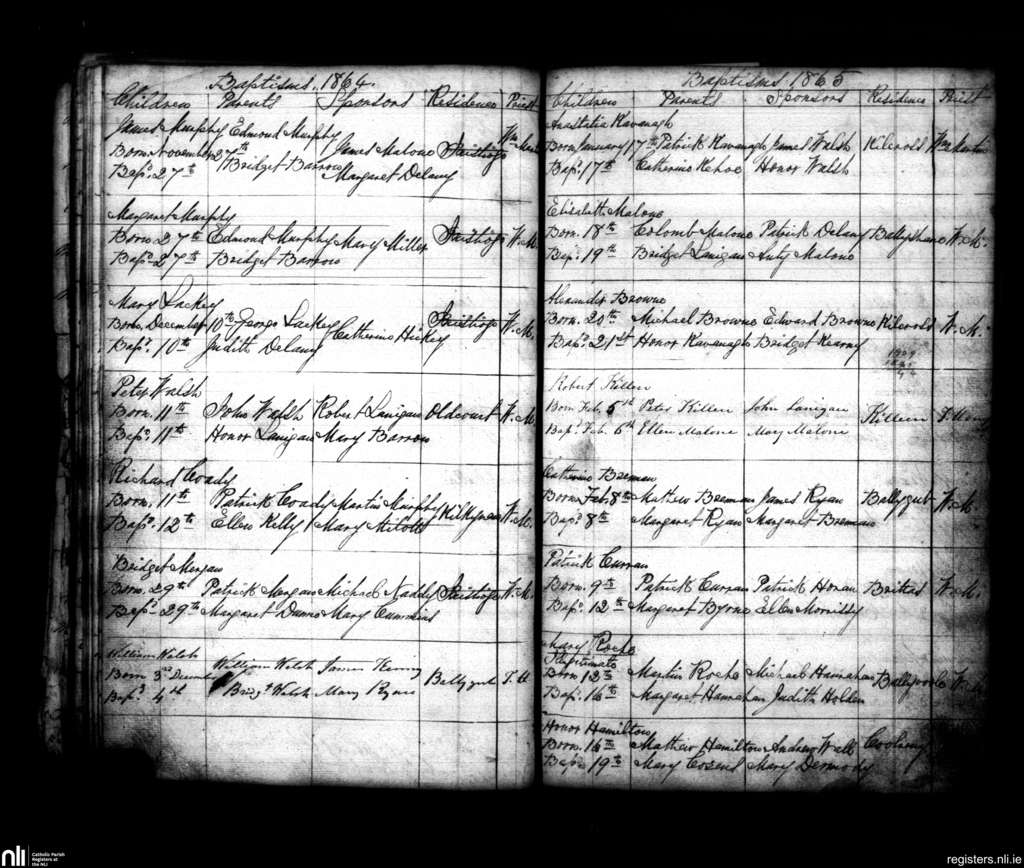 Baptisms, 1864.
Children Parents Sponsors Residence Priest
James Murphy Edmond Murphy
Born November 27th James Malone Wm
Bapd. 27th Bridget Barron Margaret Delany
Margaret Murphy
Born 27th Edmond Murphy Mary Miller W. M.
Bapd. 27th Bridget Barron
Mary Lackey
Born, December 10th George Lackey Catherine Hickey W. M.
Bapd. 10th Judith Delany
Peter Walsh
Born. 11th John Walsh Robert Lanigan Oldcourt W. M.
Bapd. 11th Honor Lanigan Mary Barron
Richard Coady
Born. 11th Patrick Coady Martin Murphy W. M.
Bapd. 12th Ellen Kelly Mary
Bridget Morgan
Born. 29th Patrick Morgan Michael W. M.
Bapd. 29th Margaret Mary Cummins
William Walsh
Born 3rd December William Walsh James
Bapd. 4th Bridgt Walsh Mary Byrne
Baptisms, 1865
Children Parents Sponsors Residence Priest
Anastatia Kavanagh
Born January 17th Patrick Kavanagh James Walsh Wm Martin
Bapd. 17th Catherine Kehoe Honor Walsh
Elisabeth Malone
Born. 18th Colomb Malone Patrick Delany W. M.
Bapd. 19th Bridget Lanigan Anty Malone
Alexander Browne
Born. 20th Michael Browne Edward Browne W. M.
Bapd. 21st Honor Kavanagh Bridget Kearny
Robert Killen
Born Feb. 5th Peter Killen John Lanigan Killeen
Bapd Feb. 6th Ellen Malone Mary Malone
Catherine
Born Feb. 8th James Ryan W. M.
Bapd. 8th Margaret Ryan Margaret
Patrick Curran
Born. 9th Patrick Curran Patrick Honan W. M.
Bapd. 12th Margaret Byrne Ellen Morrissy
Mary Roche
Illegitimate
Born 12th Martin Roche Michael Hanrahan
Bapd. 16th Margaret Hanrahan Judith Holden
Honor Hamilton
Born. 16th Mathew Hamilton Andrew Wall
Bapd. 19th Mary Mary Dermody
nli
Catholic Parish
Registers at
the NLI
registers.nli.ie